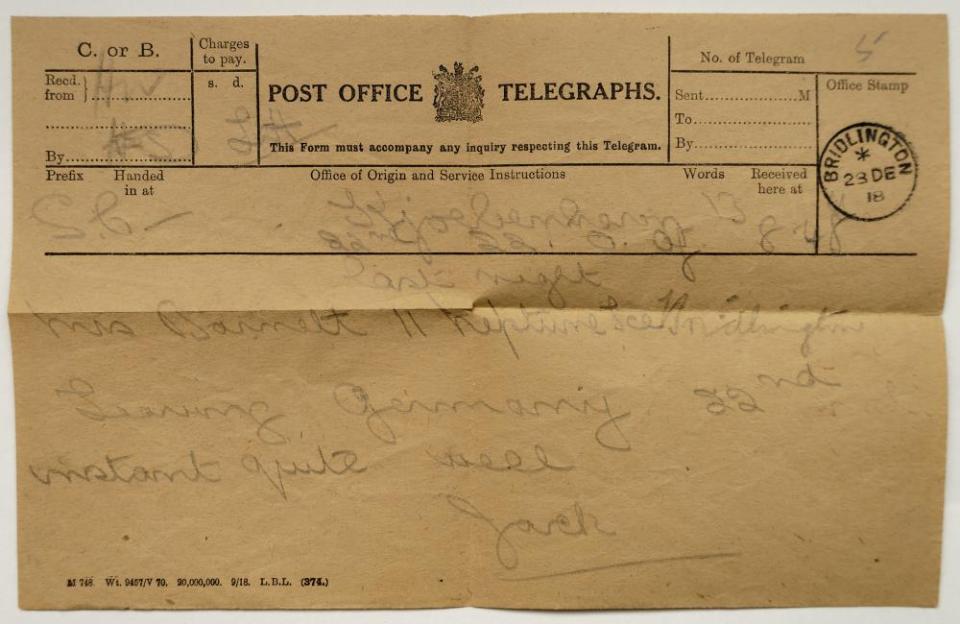 C. or B.
Charges
to pay.
s. d.
Recd.
from
By
POST OFFICE TELEGRAPHS.
This Form must accompany any inquiry respecting this Telegram.
No. of Telegram 5
Sent M
To
By
Office Stamp
BRIDLINGTON
*
23 DE
18
Prefix Handed
in at
Office of Origin and Service Instructions
Words Received
here at
last night
11 Neptune Bridlington
Leaving Germany 22nd
instant quite well
Jack
M 748. Wt. 9457/V 70. 20,000,000. 9/18. L.B.L. (374.)